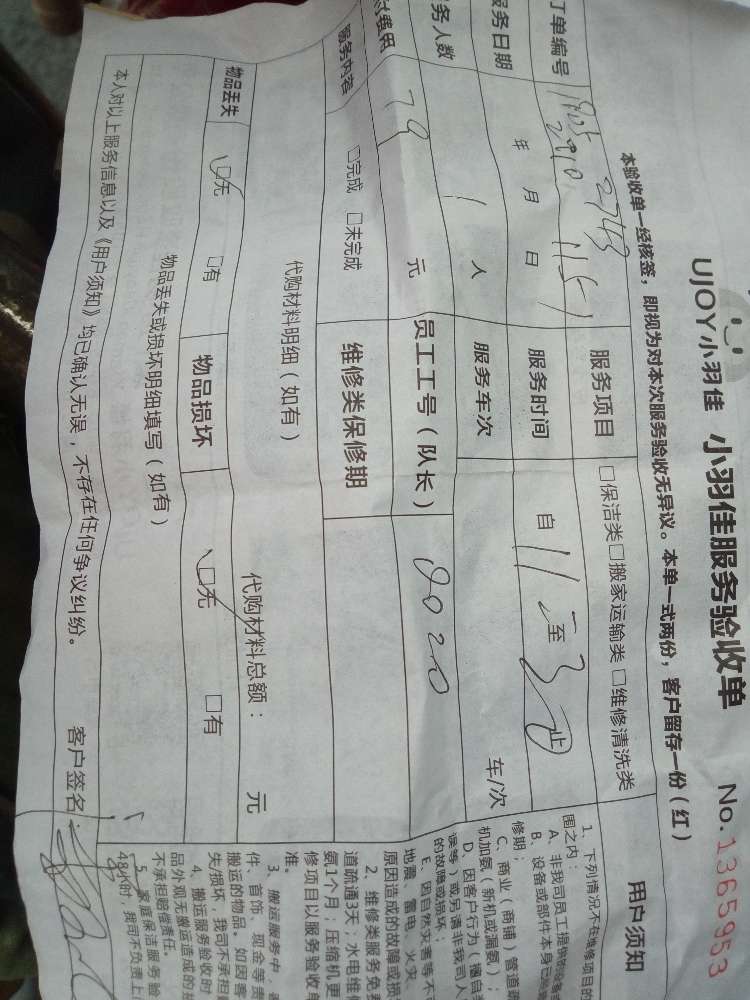 UJOY小羽佳 小羽佳服务验收单 No. 1365953
本验收单一经核签，即视为对本次服务验收无异议。本单一式两份，客户留存一份（红）
订单编号 服务项目 □保洁类□搬家运输类 □维修清洗类
服务日期 年 月 日 服务时间 自 11 至 3 止
务人数 1 人 服务车次 车/次
费用 79 元 员工工号（队长） 9020
服务内容 □完成 □未完成 维修类保修期
代购材料明细（如有） 代购材料总额： 元
物品丢失 □无 □有 物品损坏 □无 □有
物品丢失或损坏明细填写（如有）
本人对以上服务信息以及《用户须知》均已确认无误，不存在任何争议纠纷。 客户签名：
用户须知
1、下列情况不在维修项目的
围之内：
A、非我司员工提供的
B、设备或部件本身已
修期；
C、商业（商铺）管道疏
机加氨（新机或漏氨）；
D、因客户行为（擅自
误等）或另请非我司人
的故障或损坏；
E、因自然灾害等不
地震、雷电、火灾、
原因造成的故障或损
2、维修类服务免费
道疏通3天；水电维修
氨1个月；压缩机更
修项目以服务验收单
准。
3、搬运服务中，
件、首饰、现金等贵
搬运的物品。如因客
失/损坏，我司不承担
4、搬运服务验收时
品外观无搬运造成的
不承担赔偿责任。
5、家庭保洁服务验
48小时，我司不负责上